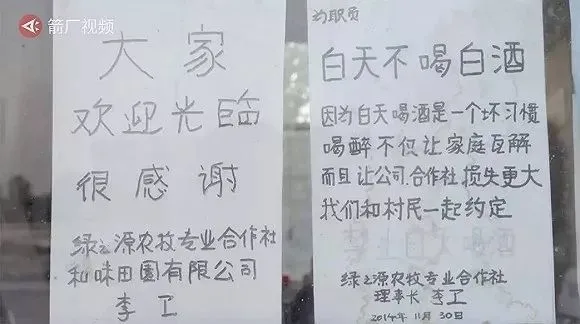 箭厂视频
大家
欢迎光临
很感谢
绿之源农牧专业合作社
和味田园有限公司
李卫
为职员
白天不喝白酒
因为白天喝酒是一个坏习惯
喝醉不仅让家庭瓦解
而且让公司.合作社损失更大
我们和村民一起约定
绿之源农牧专业合作社
理事长 李卫
2014年 11月 30日